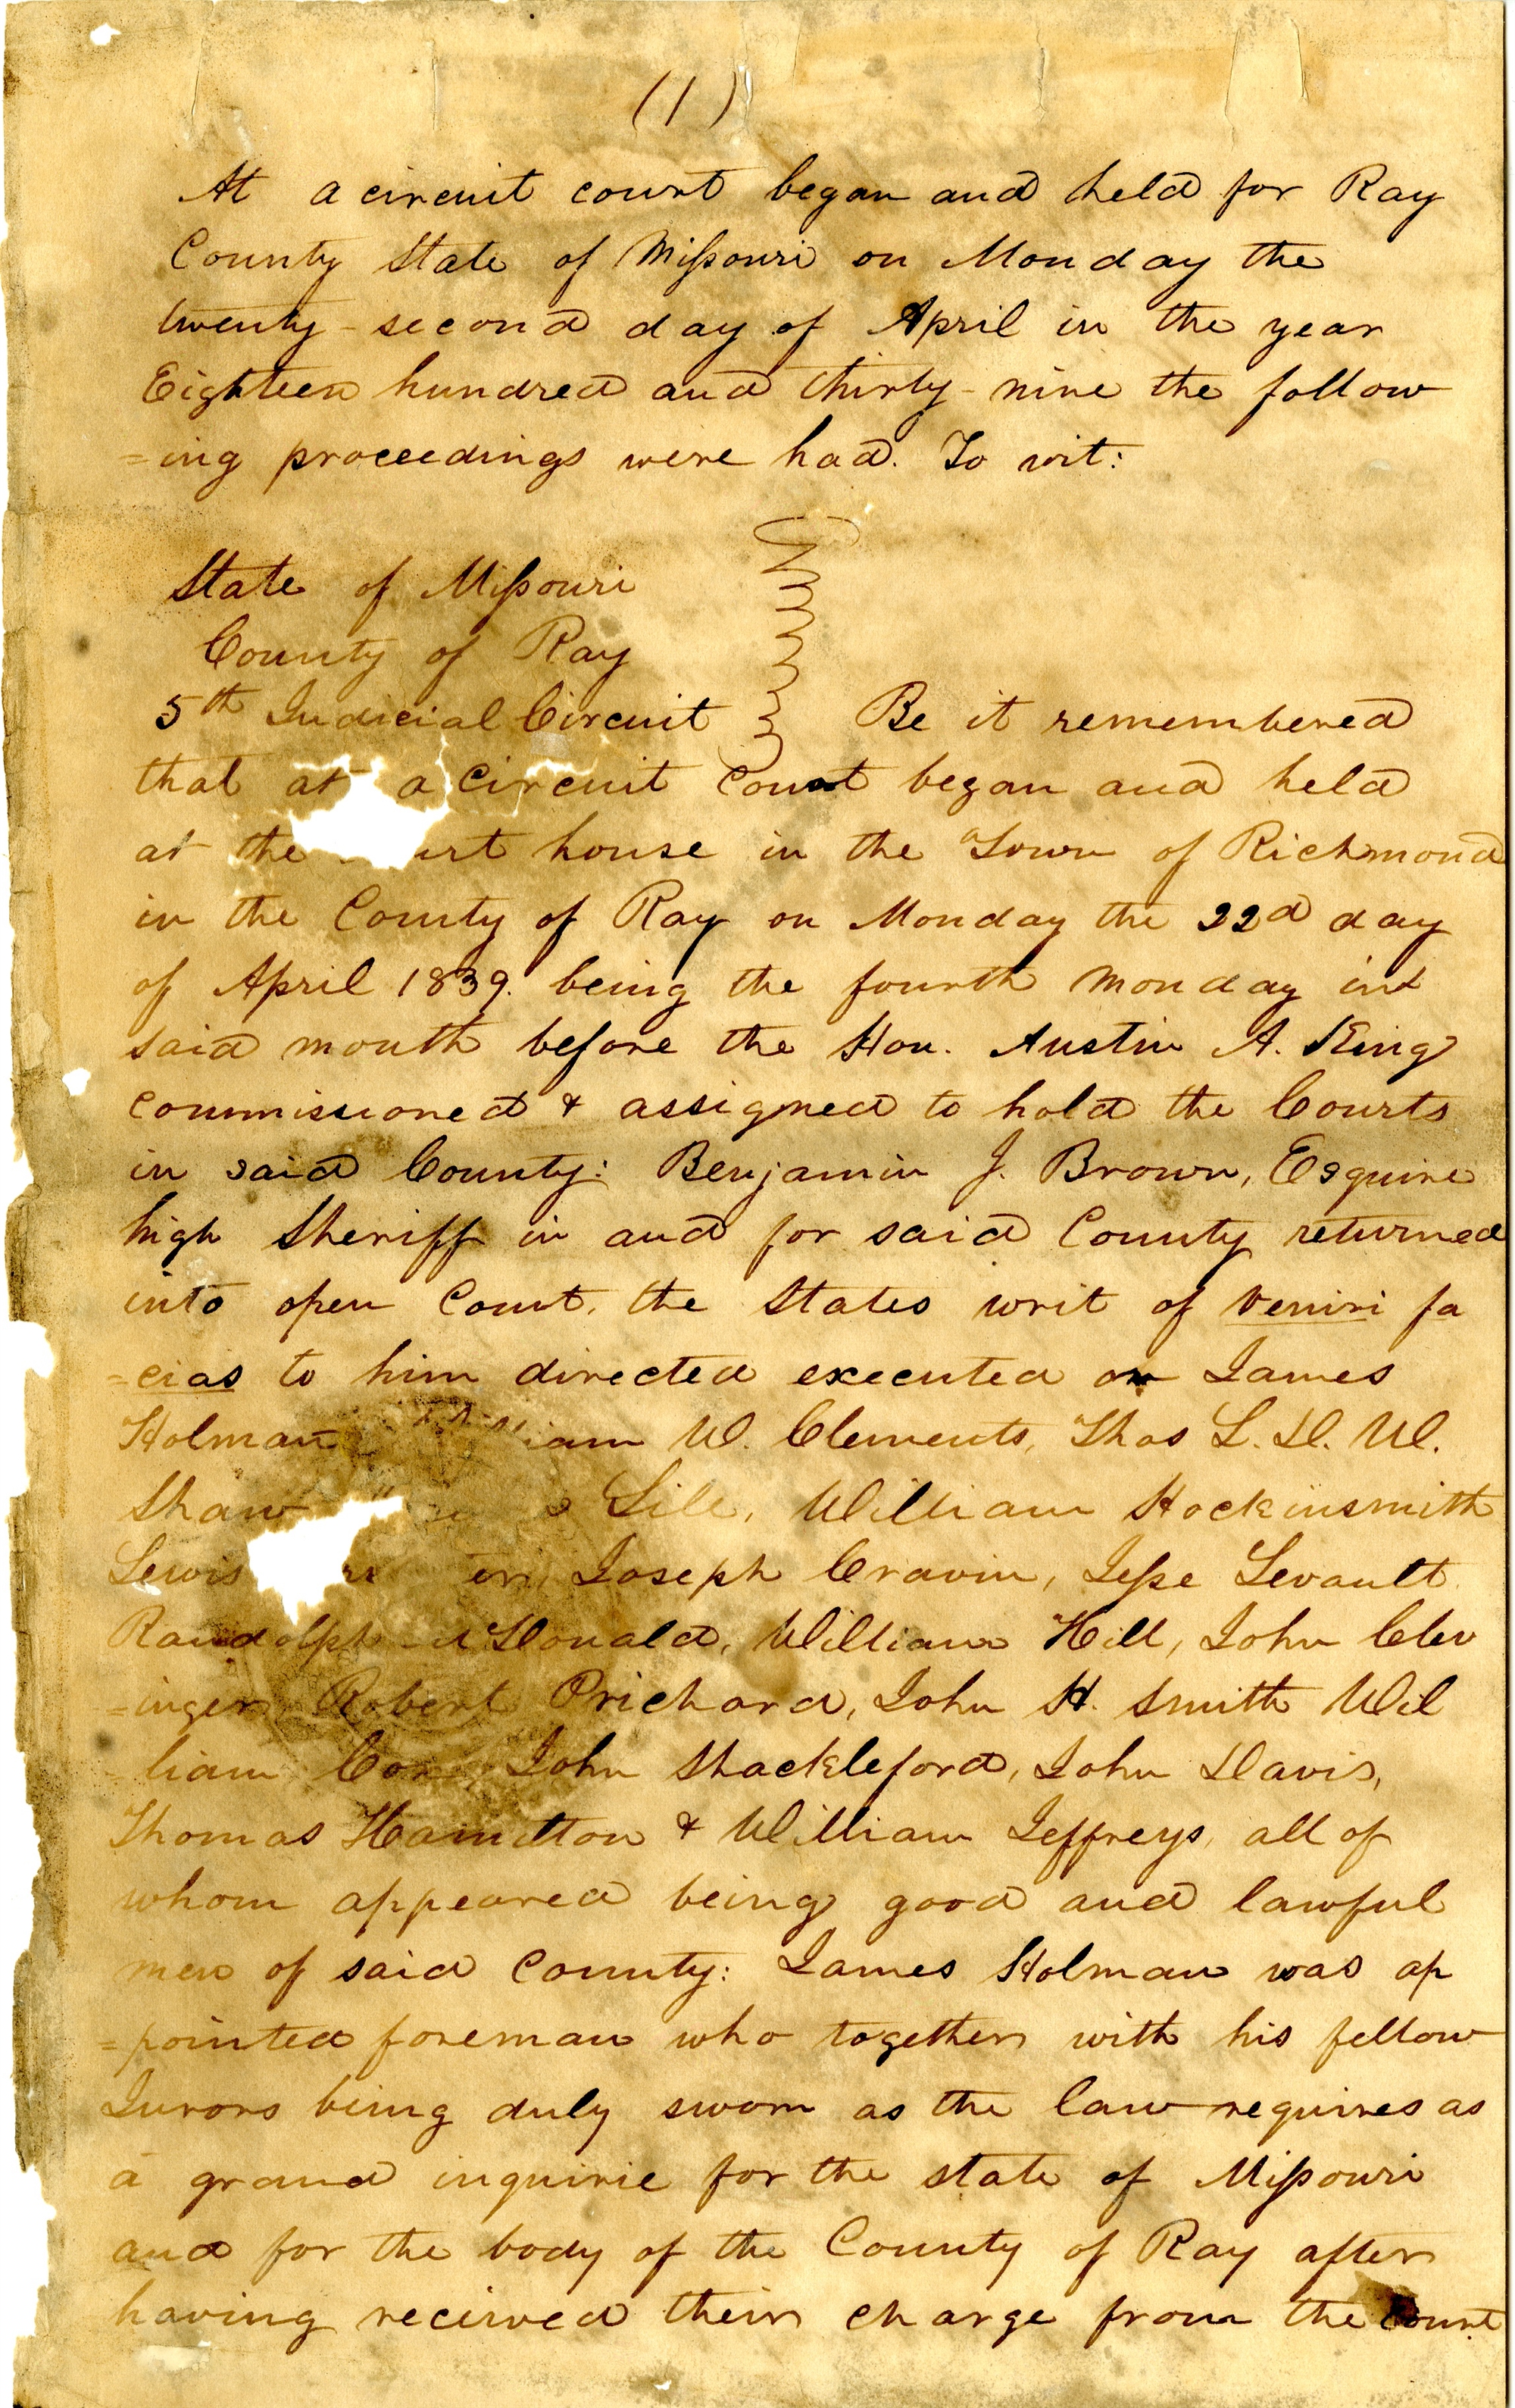 (1)
At a circuit court began and held for Ray
County State of Missouri on Monday the
twenty-second day of April in the year
Eighteen hundred and thirty-nine the follow
=ing proceedings were had. To wit:
State of Missouri
County of Ray
5th Judicial Circuit Be it remembered
that at a Circuit Court began and held
at the house in the Town of Richmond
in the County of Ray on Monday the 22d day
of April 1839. being the fourth Monday in
said month before the Hon. Austin A. King
commissioned & assigned to hold the Courts
in said County: Benjamin J. Brown, Esquire
high Sheriff in and for said County returned
into open Court, the States writ of veniri fa
=cias to him directed executed on James
Holman W. Clements, Thos L. D. W.
Shaw Lile, William Hockinsmith
Lewis Joseph Cravin, Jesse Levault
Randolph McDonald, William Hill, John Clev
=inger, Robert Prichard, John H. Smith Wil
liam John Shackleford, John Davis,
Thomas Hamilton & William Jeffreys, all of
whom appeared being good and lawful
men of said County: James Holman was ap
=pointed foreman who together with his fellow
Jurors being duly sworn as the law requires as
a grand inquirie for the state of Missouri
and for the body of the County of Ray after
having received their charge from the Court